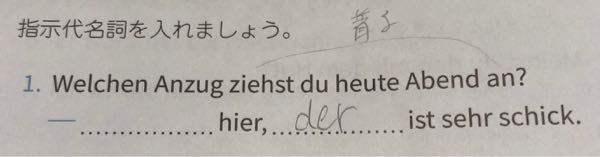 指示代名詞を入れましょう。
1. Welchen Anzug ziehst du heute Abend an?
— ................ hier, der ist sehr schick.